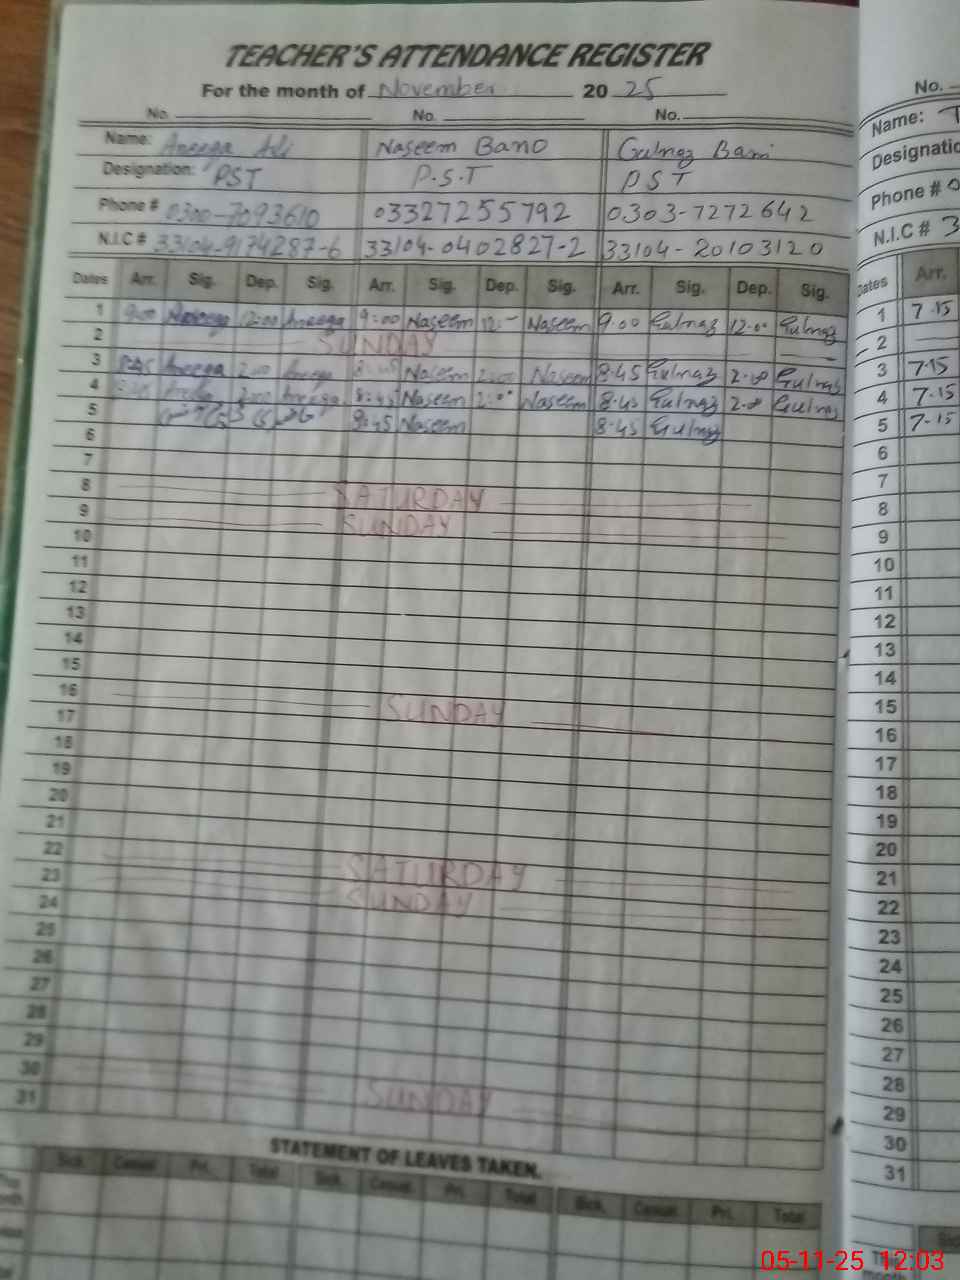 TEACHER'S ATTENDANCE REGISTER
For the month of November 20 25
No. No. No.
Name: Aneeqa Ali Naseem Bano Gulnaz Bani
Designation: PST P.S.T PST
Phone # 0300-7093610 03327255792 0303-7272642
N.I.C # 33104-9174287-6 33104-0402827-2 33104-20103120
Dates Arr. Sig. Dep. Sig. Arr. Sig. Dep. Sig. Arr. Sig. Dep. Sig.
1 9:00 Aneeqa 12:00 Aneeqa 9:00 Naseem 12:- Naseem 9.00 Gulnaz 12.00 Gulnaz
2 SUNDAY
3 Aneeqa 2:00 Aneeqa Naseem 2:00 Naseem 8:45 Gulnaz 2.00 Gulnaz
4 2:00 Aneeqa 8:45 Naseem 2:00 Naseem 8:45 Gulnaz Gulnaz
5 Naseem 8:45 Gulnaz
6
7
8 SATURDAY
9 SUNDAY
10
11
12
13
14
15
16 SUNDAY
17
18
19
20
21
22 SATURDAY
23 SUNDAY
24
25
26
27
28
29
30 SUNDAY
31
STATEMENT OF LEAVES TAKEN.
Sick. Casual. Pri. Total Sick. Casual. Pri. Total Sick. Casual. Pri. Total
No.
Name:
Designatio
Phone # 0
N.I.C # 3
Dates Arr.
1 7.15
2
3 7.15
4 7.15
5 7.15
6
7
8
9
10
11
12
13
14
15
16
17
18
19
20
21
22
23
24
25
26
27
28
29
30
31
05-11-25 12:03